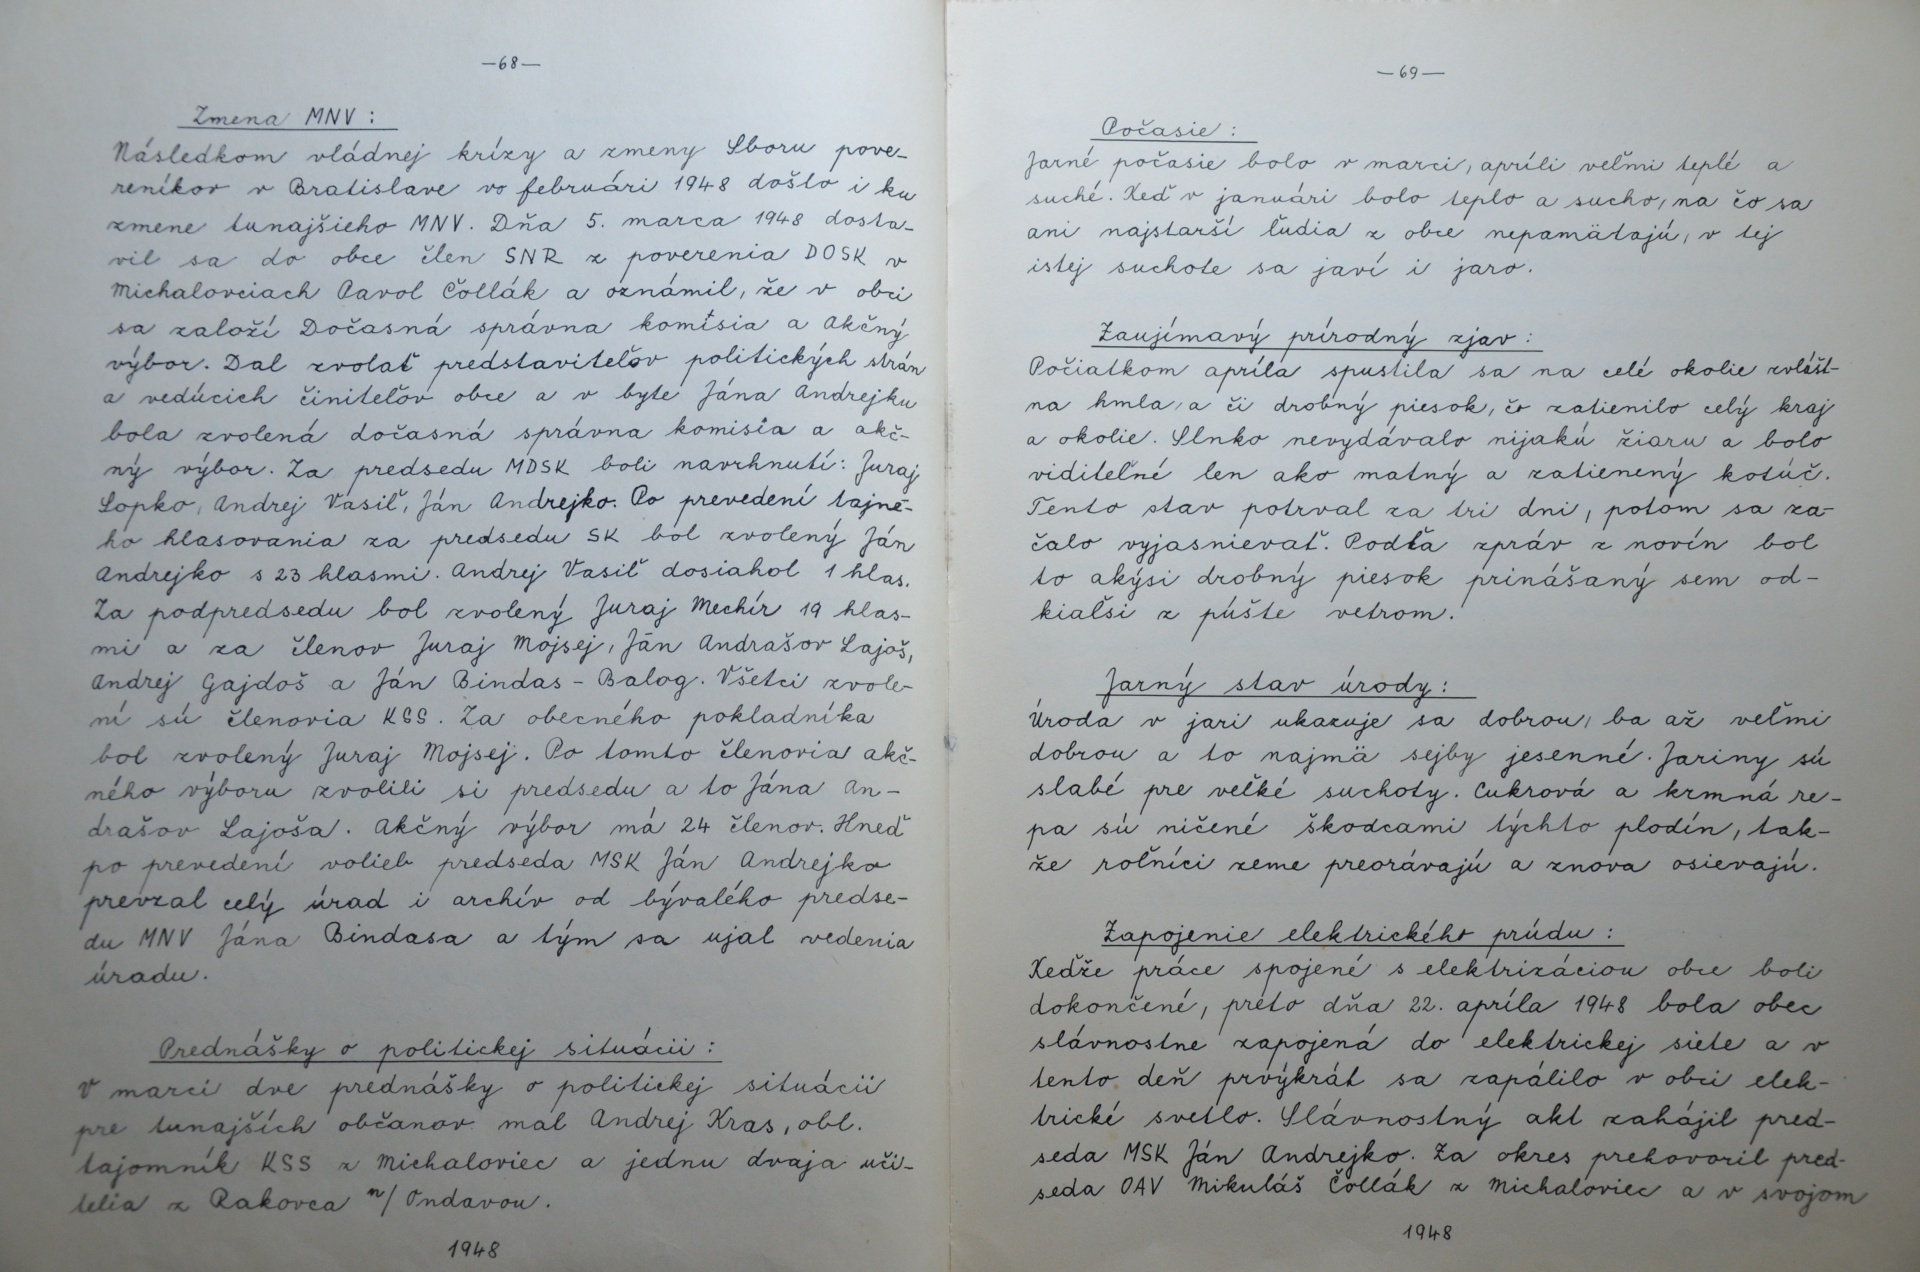 —68—
Zmena MNV :
Následkom vládnej krízy a zmeny Sboru pove-
reníkov v Bratislave vo februári 1948 došlo i ku
zmene tunajšieho MNV. Dňa 5. marca 1948 dosta-
vil sa do obce člen SNR z poverenia DOSK v
Michalovciach Pavol Čollák a oznámil, že v obci
sa založí Dočasná správna komisia a Akčný
výbor. Dal zvolať predstaviteľov politických strán
a vedúcich činiteľov obce a v byte Jána Andrejku
bola zvolená dočasná správna komisia a akč-
ný výbor. Za predsedu MDSK boli navrhnutí: Juraj
Lopko, Andrej Vasiľ, Ján Andrejko. Po prevedení tajné-
ho hlasovania za predsedu SK bol zvolený Ján
Andrejko s 23 hlasmi. Andrej Vasiľ dosiahol 1 hlas.
Za podpredsedu bol zvolený Juraj Mechír 19 hlas-
mi a za členov Juraj Mojsej, Ján Andrašov Lajoš,
Andrej Gajdoš a Ján Bindas - Balog. Všetci zvole-
ní sú členovia KSS. Za obecného pokladníka
bol zvolený Juraj Mojsej. Po tomto členovia akč-
ného výboru zvolili si predsedu a to Jána An-
drašov Lajoša. Akčný výbor má 24 členov. Hneď
po prevedení volieb predseda MSK Ján Andrejko
prevzal celý úrad i archív od bývalého predse-
du MNV Jána Bindasa a tým sa ujal vedenia
úradu.
Prednášky o politickej situácii :
V marci dve prednášky o politickej situácii
pre tunajších občanov mal Andrej Kras, obl.
tajomník KSS z Michaloviec a jednu dvaja uči-
telia z Rakovca n/ Ondavou.
1948
—69—
Počasie :
Jarné počasie bolo v marci, apríli veľmi teplé a
suché. Keď v januári bolo teplo a sucho, na čo sa
ani najstarší ľudia z obce nepamätajú, v tej
istej suchote sa javí i jaro.
Zaujímavý prírodný zjav :
Počiatkom apríla spustila sa na celé okolie zvlášt-
na hmla, a či drobný piesok, čo zatienilo celý kraj
a okolie. Slnko nevydávalo nijakú žiaru a bolo
viditeľné len ako matný a zatienený kotúč.
Tento stav potrval za tri dni, potom sa za-
čalo vyjasnievať. Podľa zpráv z novín bol
to akýsi drobný piesok prinášaný sem od-
kiaľsi z púšte vetrom.
Jarný stav úrody :
Úroda v jari ukazuje sa dobrou, ba až veľmi
dobrou a to najmä sejby jesenné. Jariny sú
slabé pre veľké suchoty. Cukrová a krmná re-
pa sú ničené škodcami týchto plodín, tak-
že roľníci zeme preorávajú a znova osievajú.
Zapojenie elektrického prúdu :
Keďže práce spojené s elektrizáciou obce boli
dokončené, preto dňa 22. apríla 1948 bola obec
slávnostne zapojená do elektrickej siete a v
tento deň prvýkrát sa zapálilo v obci elek-
trické svetlo. Slávnostný akt zahájil pred-
seda MSK Ján Andrejko. Za okres prehovoril pred-
seda OAV Mikuláš Čollák z Michaloviec a v svojom
1948